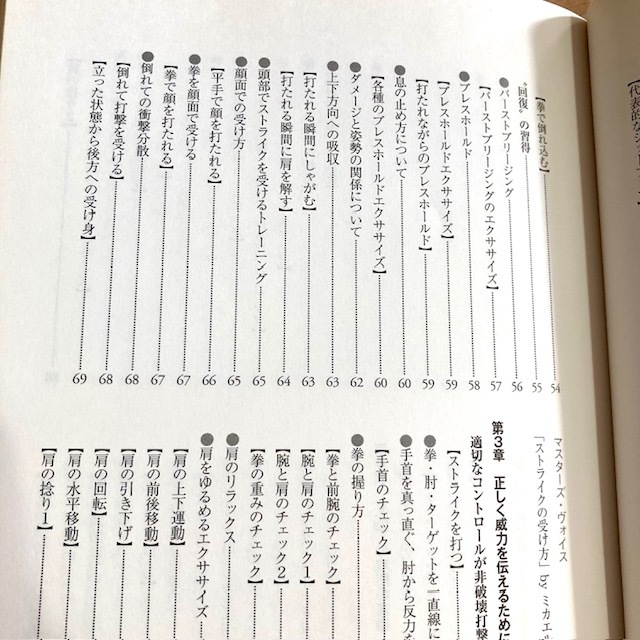 【代表的な
【拳で倒れ込む】……54
"回復"の習得……55
●バーストブリージング……56
【バーストブリージングのエクササイズ】……57
●ブレスホールド……58
【ブレスホールドエクササイズ】……59
【打たれながらのブレスホールド】……59
●息の止め方について……60
【各種のブレスホールドエクササイズ】……60
●ダメージと姿勢の関係について……62
●上下方向への吸収……63
【打たれる瞬間にしゃがむ】……63
【打たれる瞬間に肩を解す】……64
●頭部でストライクを受けるトレーニング……65
●顔面での受け方……65
【平手で顔を打たれる】……66
●拳を顔面で受ける……67
【拳で顔を打たれる】……67
●倒れての衝撃分散……68
【倒れて打撃を受ける】……68
【立った状態から後方への受け身】……69
マスターズ・ヴォイス
「ストライクの受け方」by ミカエル
第3章 正しく威力を伝えるために
適切なコントロールが非破壊打撃
【ストライクを打つ】……
●拳・肘・ターゲットを一直線に
●手首を真っ直ぐ、肘から反力を
【手首のチェック】……
●拳の握り方……
【拳と前腕のチェック】……
【腕と肩のチェック1】……
【腕と肩のチェック2】……
【拳の重みのチェック】……
●肩のリラックス……
●肩をゆるめるエクササイズ……
【肩の上下運動】……
【肩の前後移動】……
【肩の引き下げ】……
【肩の回転】……
【肩の水平移動】……
【肩の捻り1】……